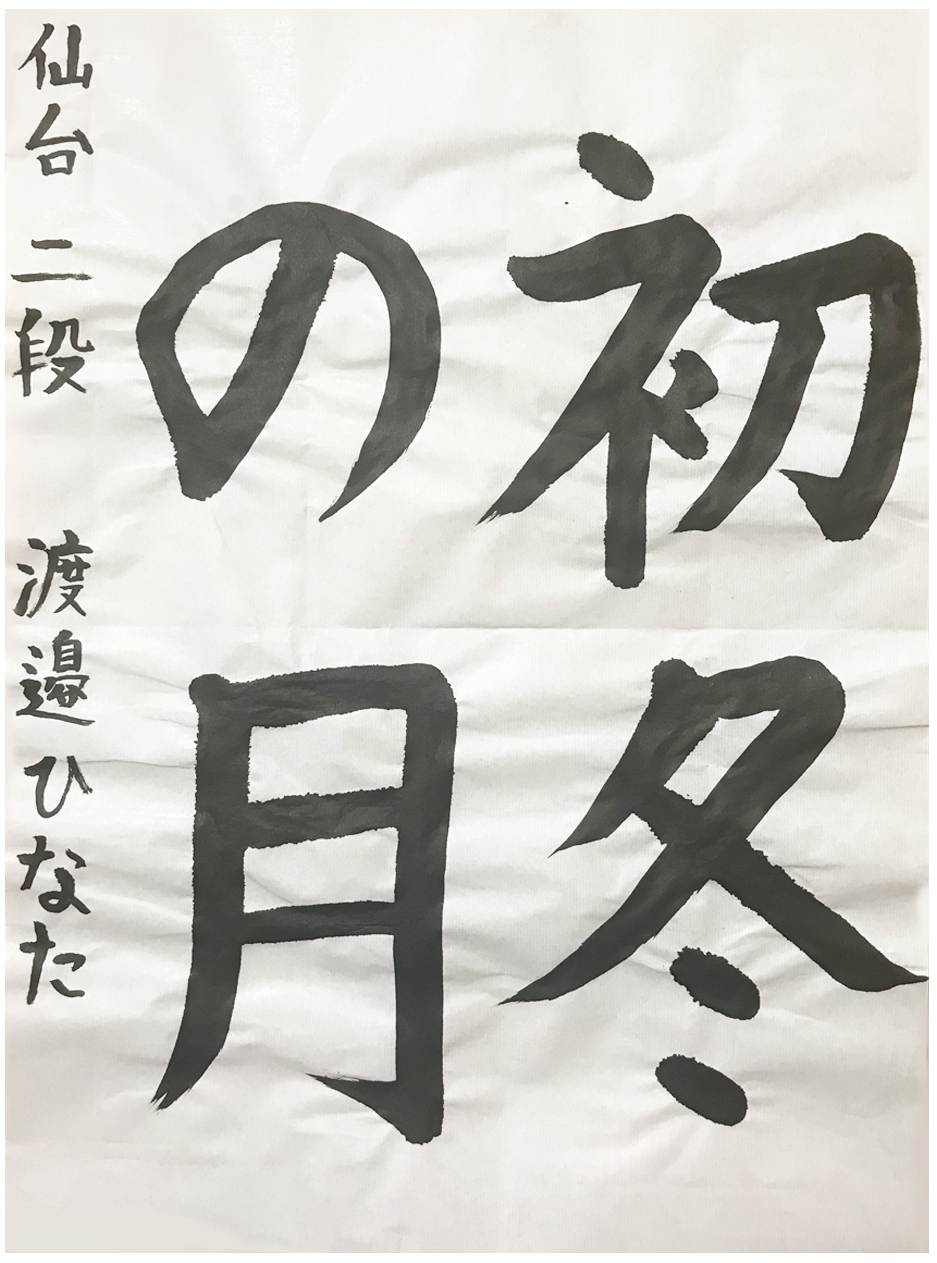 初冬
の月
仙台 二段 渡邉ひなた